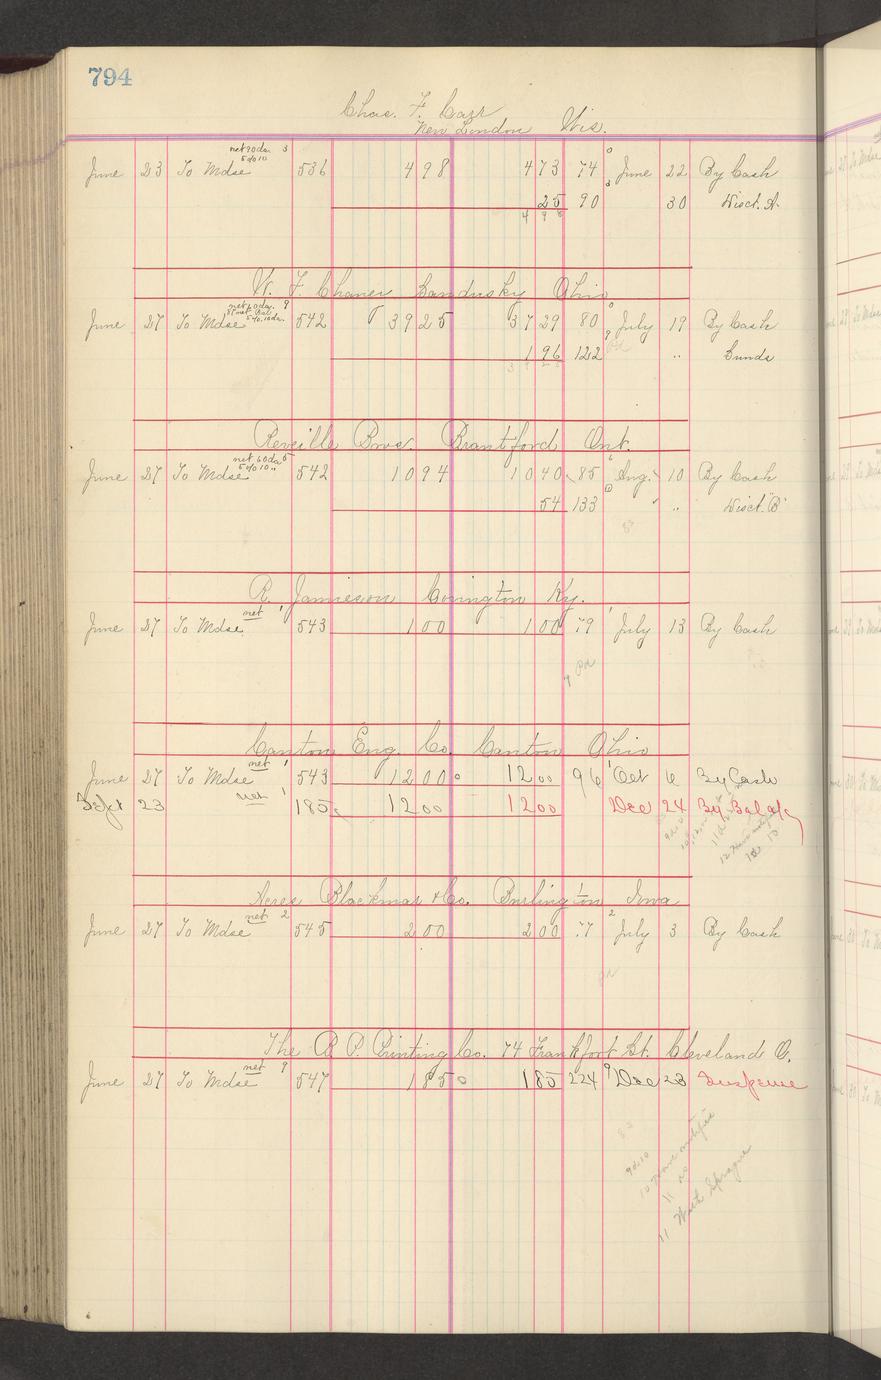 794
Chas. F. Carr
New London Wis.
net 90 da. 3
5 % 10
June 23 To Mdse 536 498 473 74 June 22 By Cash
25 90 30 Disct. A.
4 9 8
W. F. Chaner Sandusky Ohio
net 60 da. 9
5 % 10 da.
June 27 To Mdse 542 3925 3729 80 July 19 By Cash
196 122 " Sunds
Pd
Reveille Bros. Brantford Ont.
net 60 da 5
5 % 10 "
June 27 To Mdse 542 1094 1040 85 Aug. 10 By Cash
54 133 " Disct. "B"
R. Jamieson Covington Ky.
net 1
June 27 To Mdse 543 100 100 79 July 13 By Cash
9 Pd
Canton Eng. Co. Canton Ohio
net 1
June 27 To Mdse 543 1200 1200 96 Oct 6 By Cash
Sept 23 net 1 185 1200 1200 Dec 24 By Bal a/c
Acres Blackmar & Co. Burlington Iowa
net 2
June 27 To Mdse 545 200 200 77 July 3 By Cash
The A. P. Printing Co. 74 Frankfort St. Cleveland O.
net 9
June 27 To Mdse 547 185 185 224 Dec 23 Suspense
11 With Sprague